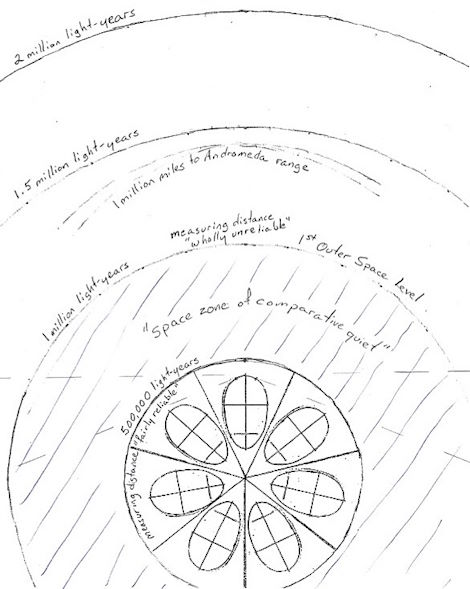 2 million light-years
1.5 million light-years
1 million miles to Andromeda range
measuring distance
"wholly unreliable"
1st Outer Space Level
1 million light-years
"Space zone of comparative quiet"
500,000 light-years
measuring distance "fairly reliable"